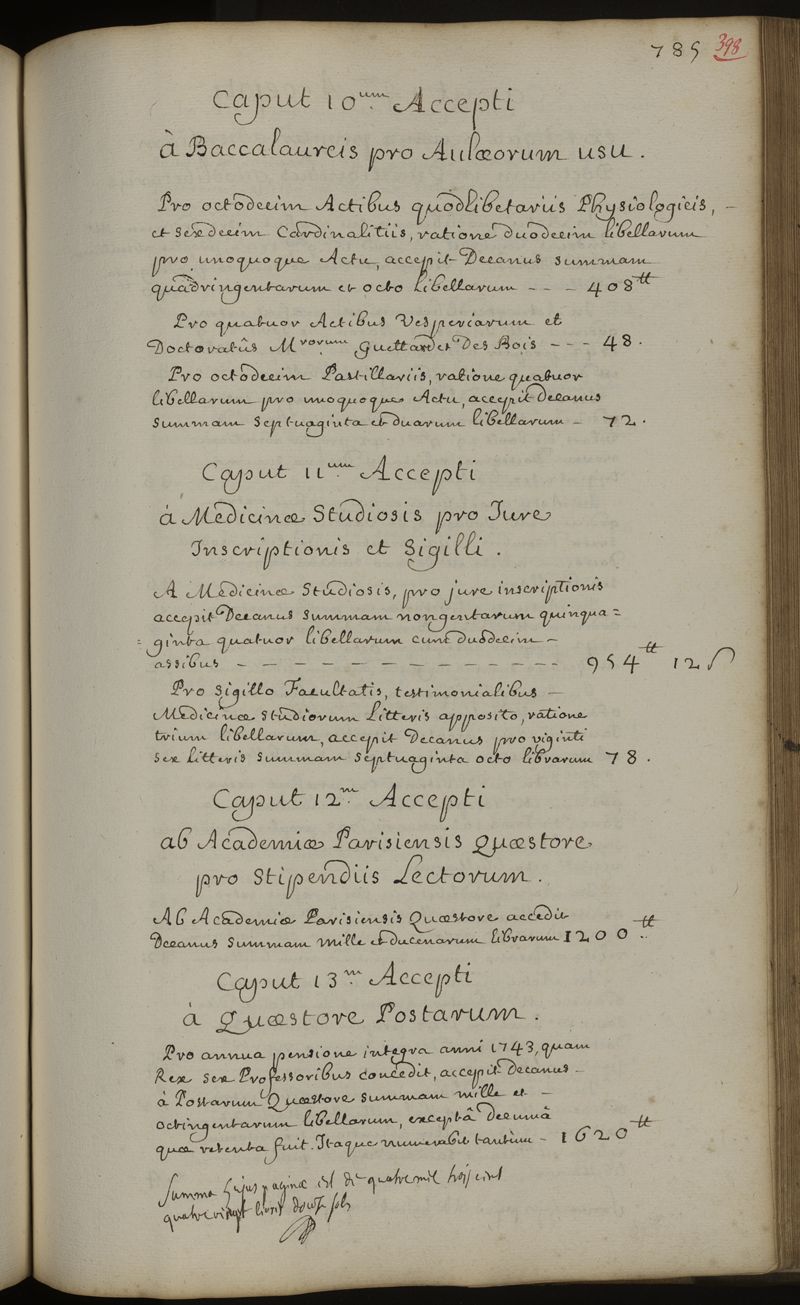 785 398
Caput 10um. Accepti
à Baccalaureis pro Aulæorum usu.
Pro octodecim Actibus quodlibetariis Physiologicis, -
et sexdecim Cardinalitiis, ratione duodecim libellarum
pro unoquoque Actu, accepit Decanus summam
quadringentarum et octo libellarum - - - 408 tt
Pro quatuor Actibus Vesperiarum et
Doctoratûs Mrorum Guettard et Des Bois - - - 48.
Pro octodecim Pastillariis, ratione quatuor
libellarum pro unoquoque Actu, accepit Decanus
summam septuaginta et duarum libellarum - 72.
Caput 11um Accepti
à Medicinæ Studiosis pro Jure
Inscriptionis et Sigilli.
A Medicinæ Studiosis, pro jure inscriptionis
accepit Decanus summam nongentarum quinqua=
=ginta quatuor libellarum cum duodecim -
assibus - - - - - - - - - - - - 954 tt 12 s
Pro sigillo Facultatis, testimonialibus -
Medicinæ studiorum Litteris apposito, ratione
trium libellarum, accepit Decanus pro viginti
sex Litteris summam septuaginta octo librarum 78.
Caput 12m. Accepti
ab Academiæ Parisiensis Quæstore
pro Stipendiis Lectorum.
Ab Academiæ Parisiensis Quæstore accedit
Decanus summam mille et ducenarum librarum 1200 tt.
Caput 13m. Accepti
à Quæstore Postarum.
Pro annua pensione integra anni 1743, quam
Rex sex Professoribus concedit, accepit Decanus -
à Postarum Quæstore summam mille et -
octingentarum libellarum, exceptâ decimâ
quæ retenta fuit. Itaque numerabit tantùm - 1620 tt
Summa hujus paginæ est de quatre mil trois cent
quatre vingt livres douze sols